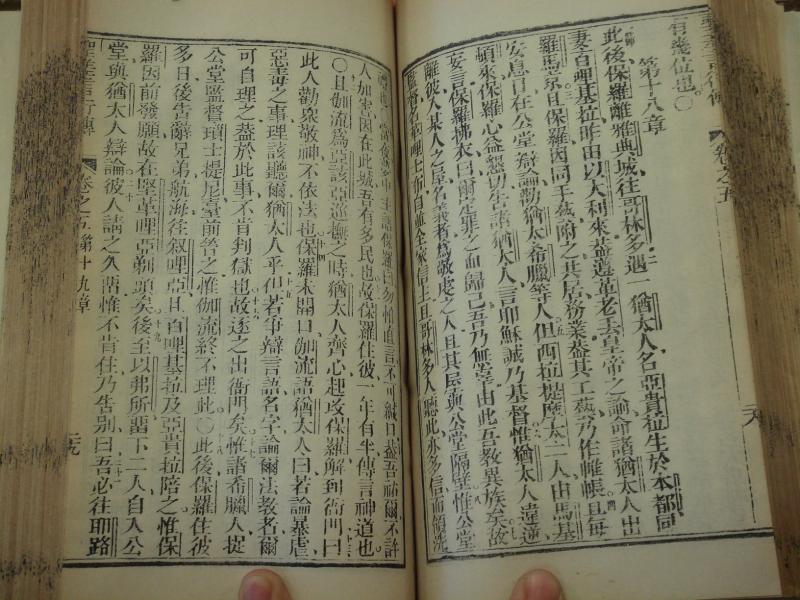 卷之五
有幾位也〇
第十八章
此後保羅離雅典城往哥林多遇一猶太人名亞貴拉生於本都同
妻百哩基拉昨由以大利來葢遵革老去皇帝之諭命諸猶太人出
羅馬京且保羅因同手藝附之其居務業葢其工藝乃作帷帳且每
安息日在公堂辯論勸猶太希臘等人但西拉提摩太二人由馬基
頓來保羅心益懇切告講猶太人言耶穌誠乃基督惟猶太人違逆
妄言保羅拂衣曰爾定罪之血歸己吾乃無辜由此吾教異族矣故
離彼入某人之居名義者爲敬虔之人且其居與公堂隔壁惟公堂
監督名哩士布自並全家信主且哥林多人聽此亦多信而領洗
夜夢中主語保羅曰勿懼宜言不可緘口葢吾祐爾不許
人加害因在此城吾有多民也故保羅住彼一年有半傳言神道也
〇且伽流爲亞該亞巡撫之時猶太人齊心起攻保羅解到衙門曰
此人勸衆敬神不依法也保羅未開口伽流語猶太人曰若論暴虐
惡毒之事理該聽爾猶太人乎但若爭辯言語名字論爾法教者爾
可自理之葢於此事不肯判獄也故逐之出衙門矣惟諸希臘人捉
公堂監督瑣士提尼臺前笞之惟伽流終不理此〇此後保羅住彼
多日後告辭兄弟航海往叙哩亞且百哩基拉及亞貴拉陪之惟保
羅因前發願故在堅革哩亞剃頭矣後至以弗所畱下二人自入公
堂與猶太人辯論彼人請之久畱惟不肯住乃告別曰吾必往耶路
聖差言行傳 卷之五第十九章